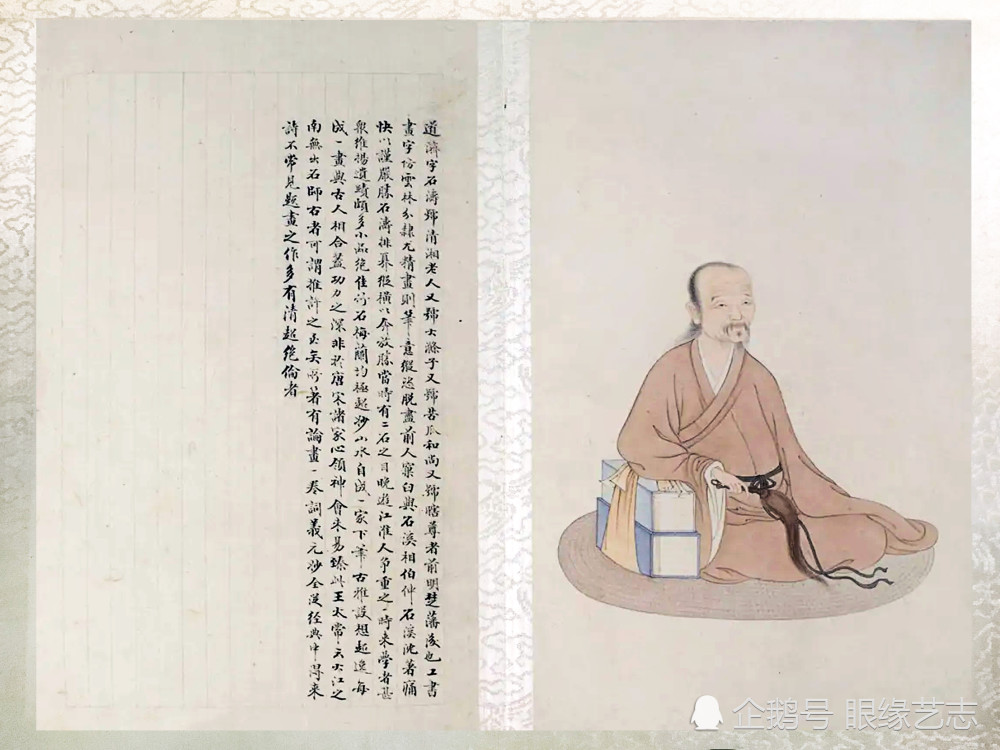 道濟字石濤號清湘老人又號大滌子又號苦瓜和尚又號瞎尊者前明楚藩後也工書
畫字仿雲林分隸尤精畫則筆意縱恣脫盡前人窠臼與石溪相伯仲石溪沈著痛
快以謹嚴勝石濤排奡縱橫以奔放勝當時有二石之目晚遊江淮人爭重之一時來學者甚
衆維揚遺蹟頗多小品絕佳竹石梅蘭均極超妙山水自成一家下筆古雅設想超逸每
成一畫與古人相合蓋功力之深非於唐宋諸家心領神會未易臻此王太常云大江之
南無出石師右者可謂推許之至矣所著有論畫一卷詞義元妙全從經典中得來
詩不常見題畫之作多有清超絕倫者
企鹅号 眼缘艺志